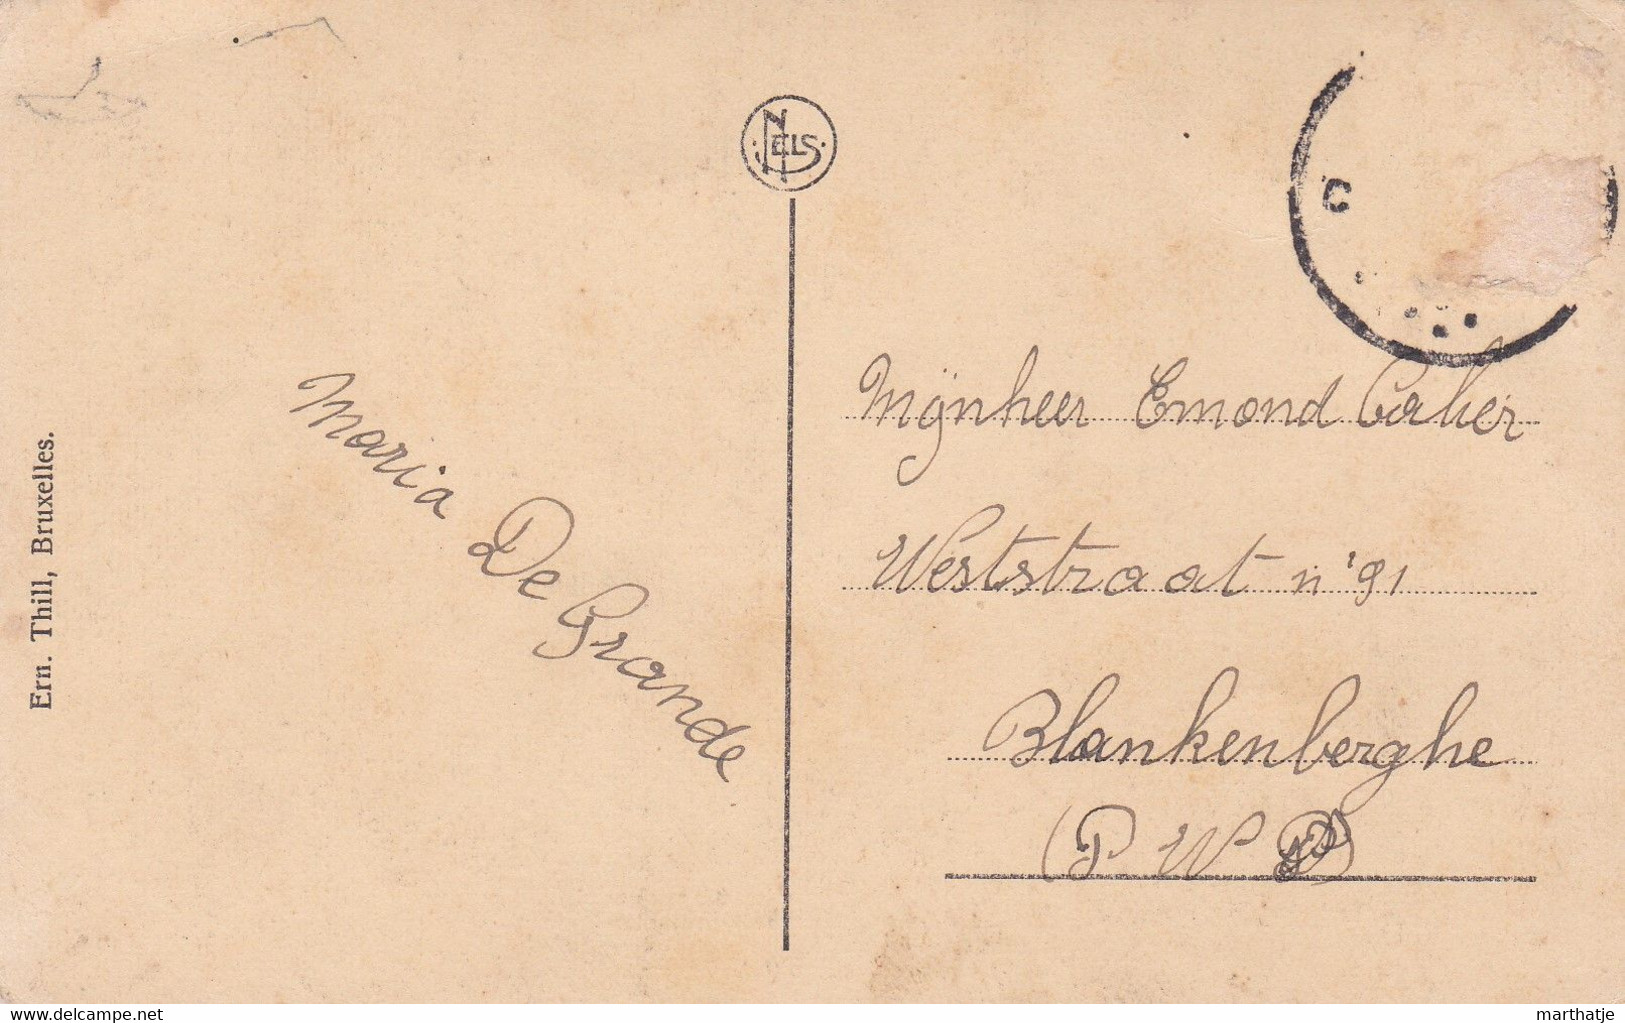 NELS
Ern. Thill, Bruxelles.
Maria De Grande
Mijnheer Emond
Weststraat n° 91
Blankenberghe
(P W
C
www.delcampe.net
marthatje